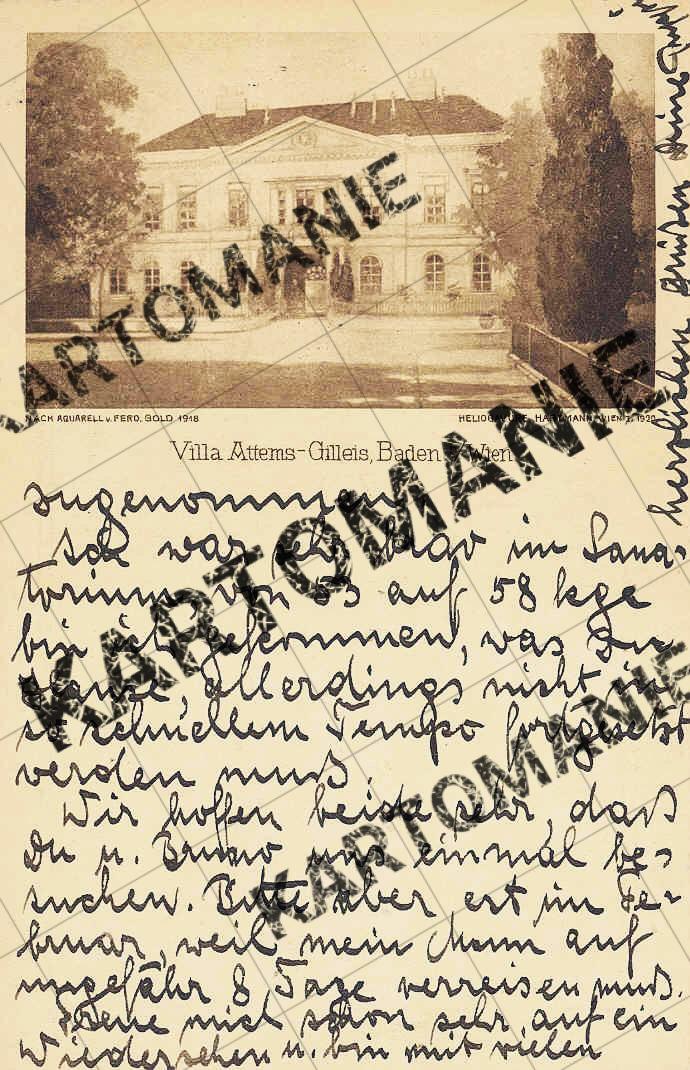 NACH AQUARELL v. FERD. GOLD. 1918
HELIOGRAVURE HARTMANN, WIEN 1, 1920
Villa Attems-Gilleis, Baden b/ Wien
zugenommen
Ich war sehr brav im Sana-
torium, von 53 auf 58 kge
bin ich gekommen, was zu
Hause, allerdings nicht in
so schnellem Tempo fortgesetzt
werden muß.
Wir hoffen beide sehr, daß
Du u. Bruno uns einmal be-
suchen. Bitte aber erst im Fe-
bruar, weil mein Mann auf
ungefähr 8 Tage verreisen muß.
Freue mich schon sehr auf ein
Wiedersehen u. bin mit vielen
herzlichen Grüßen Deine
KARTOMANIE
KARTOMANIE
KARTOMANIE